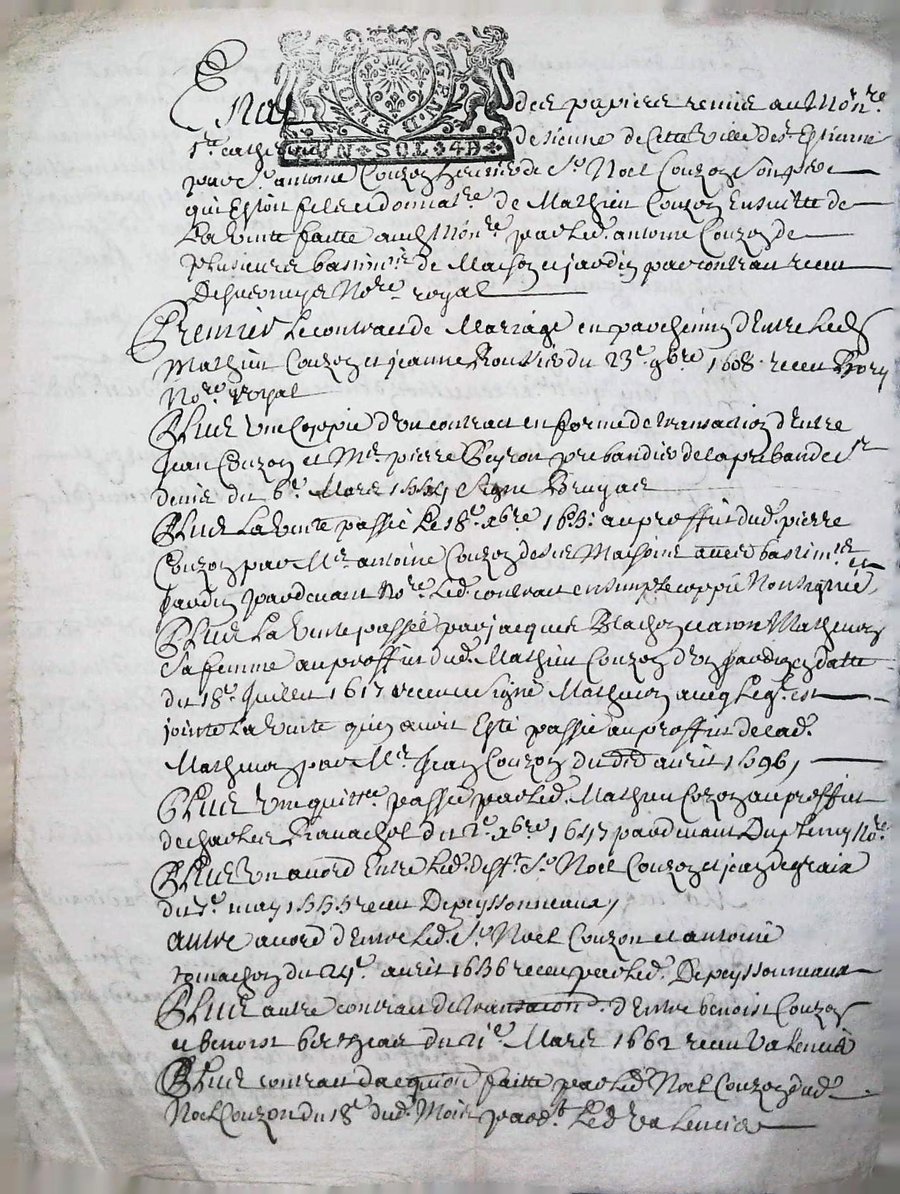 GEND DE LION
UN SOL 4D
des papiers remis au Mon.re
S.te Cathe de Sienne de Cette Ville de S.t Estienne
par S.r antoine Couzon heritier de S.r Noel Couzon Son pere
qui Estoit fils et donnat.re de Mathieu Couzon Ensuitte de
La Vente faitte aud Mon.re par Led. antoine Couzon de
plusieurs bastim.ts de Maison et jardin par contrat receu
No.re royal
Premier Le contract de Mariage en parchemin d'Entre Led
Mathieu Couzon et jeanne du 23.e 9bre 1608 receu
No.re Royal
Plus Une Coppie d'un contract en forme de transaction d'Entre
Jean Couzon et M.re pierre Peyron prebandier de la prebande S.t
denis du 6.e Mars Signé
Plus La Vente passée Le 18.e xbre au proffit dud. pierre
Couzon par M.re antoine Couzon de ses Maisons avec bastim.ts et
jardin pardevant No.re Led. contrat en simple coppie Non signée
Plus La Vente passée par jacques Blachon et
Sa femme au proffit dud. Mathieu Couzon d'un jardin en datte
du 18.e Juillet 1617 receu et signé avecq Leq.l est
jointe La Vente qui avoit Esté passée au proffit de lad.
par M.re Jean Couzon du avril 1596
Plus Une quitt.ce passée par Led. Mathieu Cozon au proffit
de charles Ravachol du 2.e xbre 1647 pardevant Duplenny No.re
Plus Un acord Entre Led. deff.t S.r Noel Couzon et jean degraix
du may receu Depeyssonneaux
autre acord d'Entre Led. S.r Noel Couzon et antoine
du 24.e avril 1636 receu par Led. Depeyssonneaux
Plus autre contrat de transaction d'Entre benoist Couzon
et benoist du 21.e Mars 1662 receu Valencie
Plus contrat d'acquis.on faitte par Led. Noel Couzon dud.
Noel Couzon du 18.e dud. Mois pard.t Led Valencie